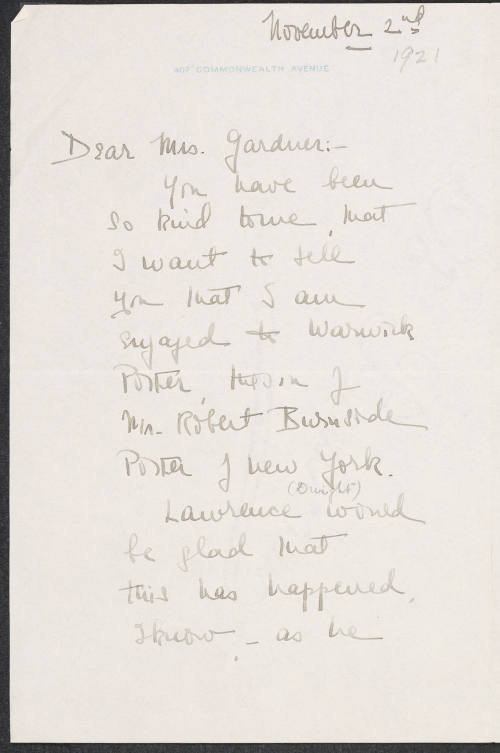 November 2nd
1921
407 COMMONWEALTH AVENUE
Dear Mrs. Gardner:-
You have been
so kind to me, that
I want to tell
you that I am
engaged to Warwick
Potter, the son of
Mr. Robert Burnside
Potter of New York.
(Dwight)
Lawrence would
be glad that
this has happened,
I know - as he